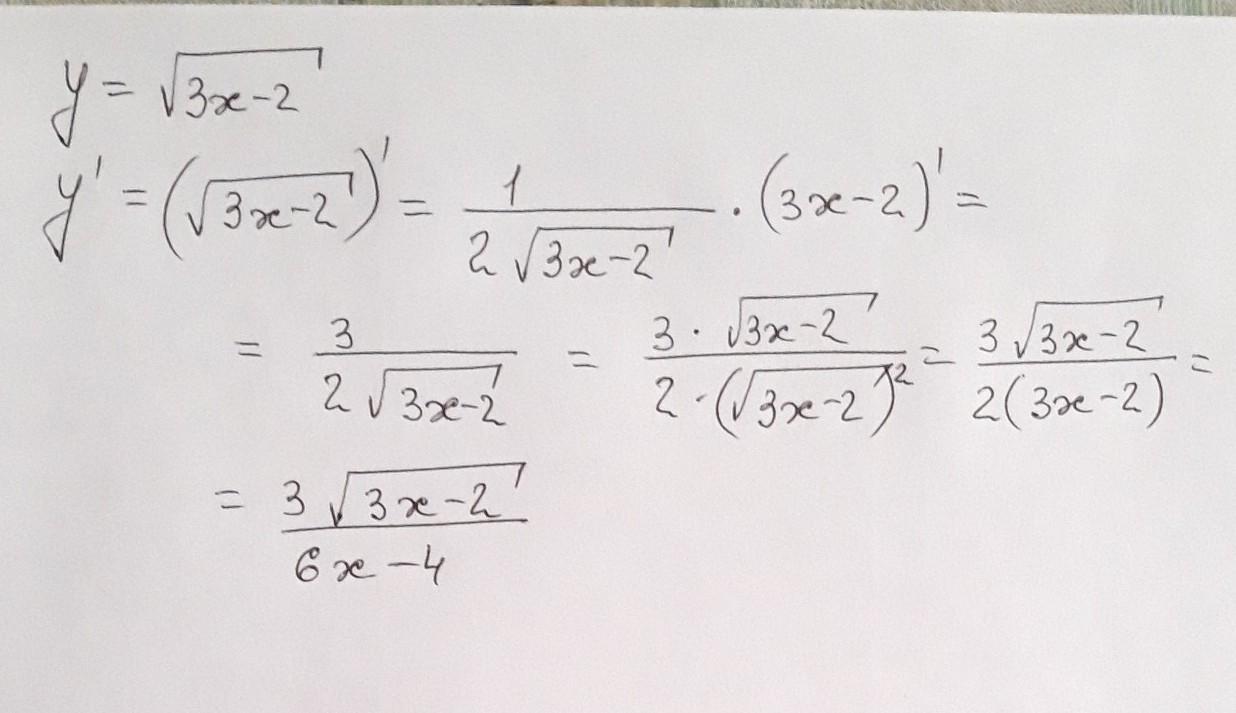 y = √(3x-2)
y' = (√(3x-2))' = 1/(2√(3x-2)) · (3x-2)' =
= 3/(2√(3x-2)) = (3 · √(3x-2))/(2 · (√(3x-2))²) = (3√(3x-2))/(2(3x-2)) =
= (3√(3x-2))/(6x-4)